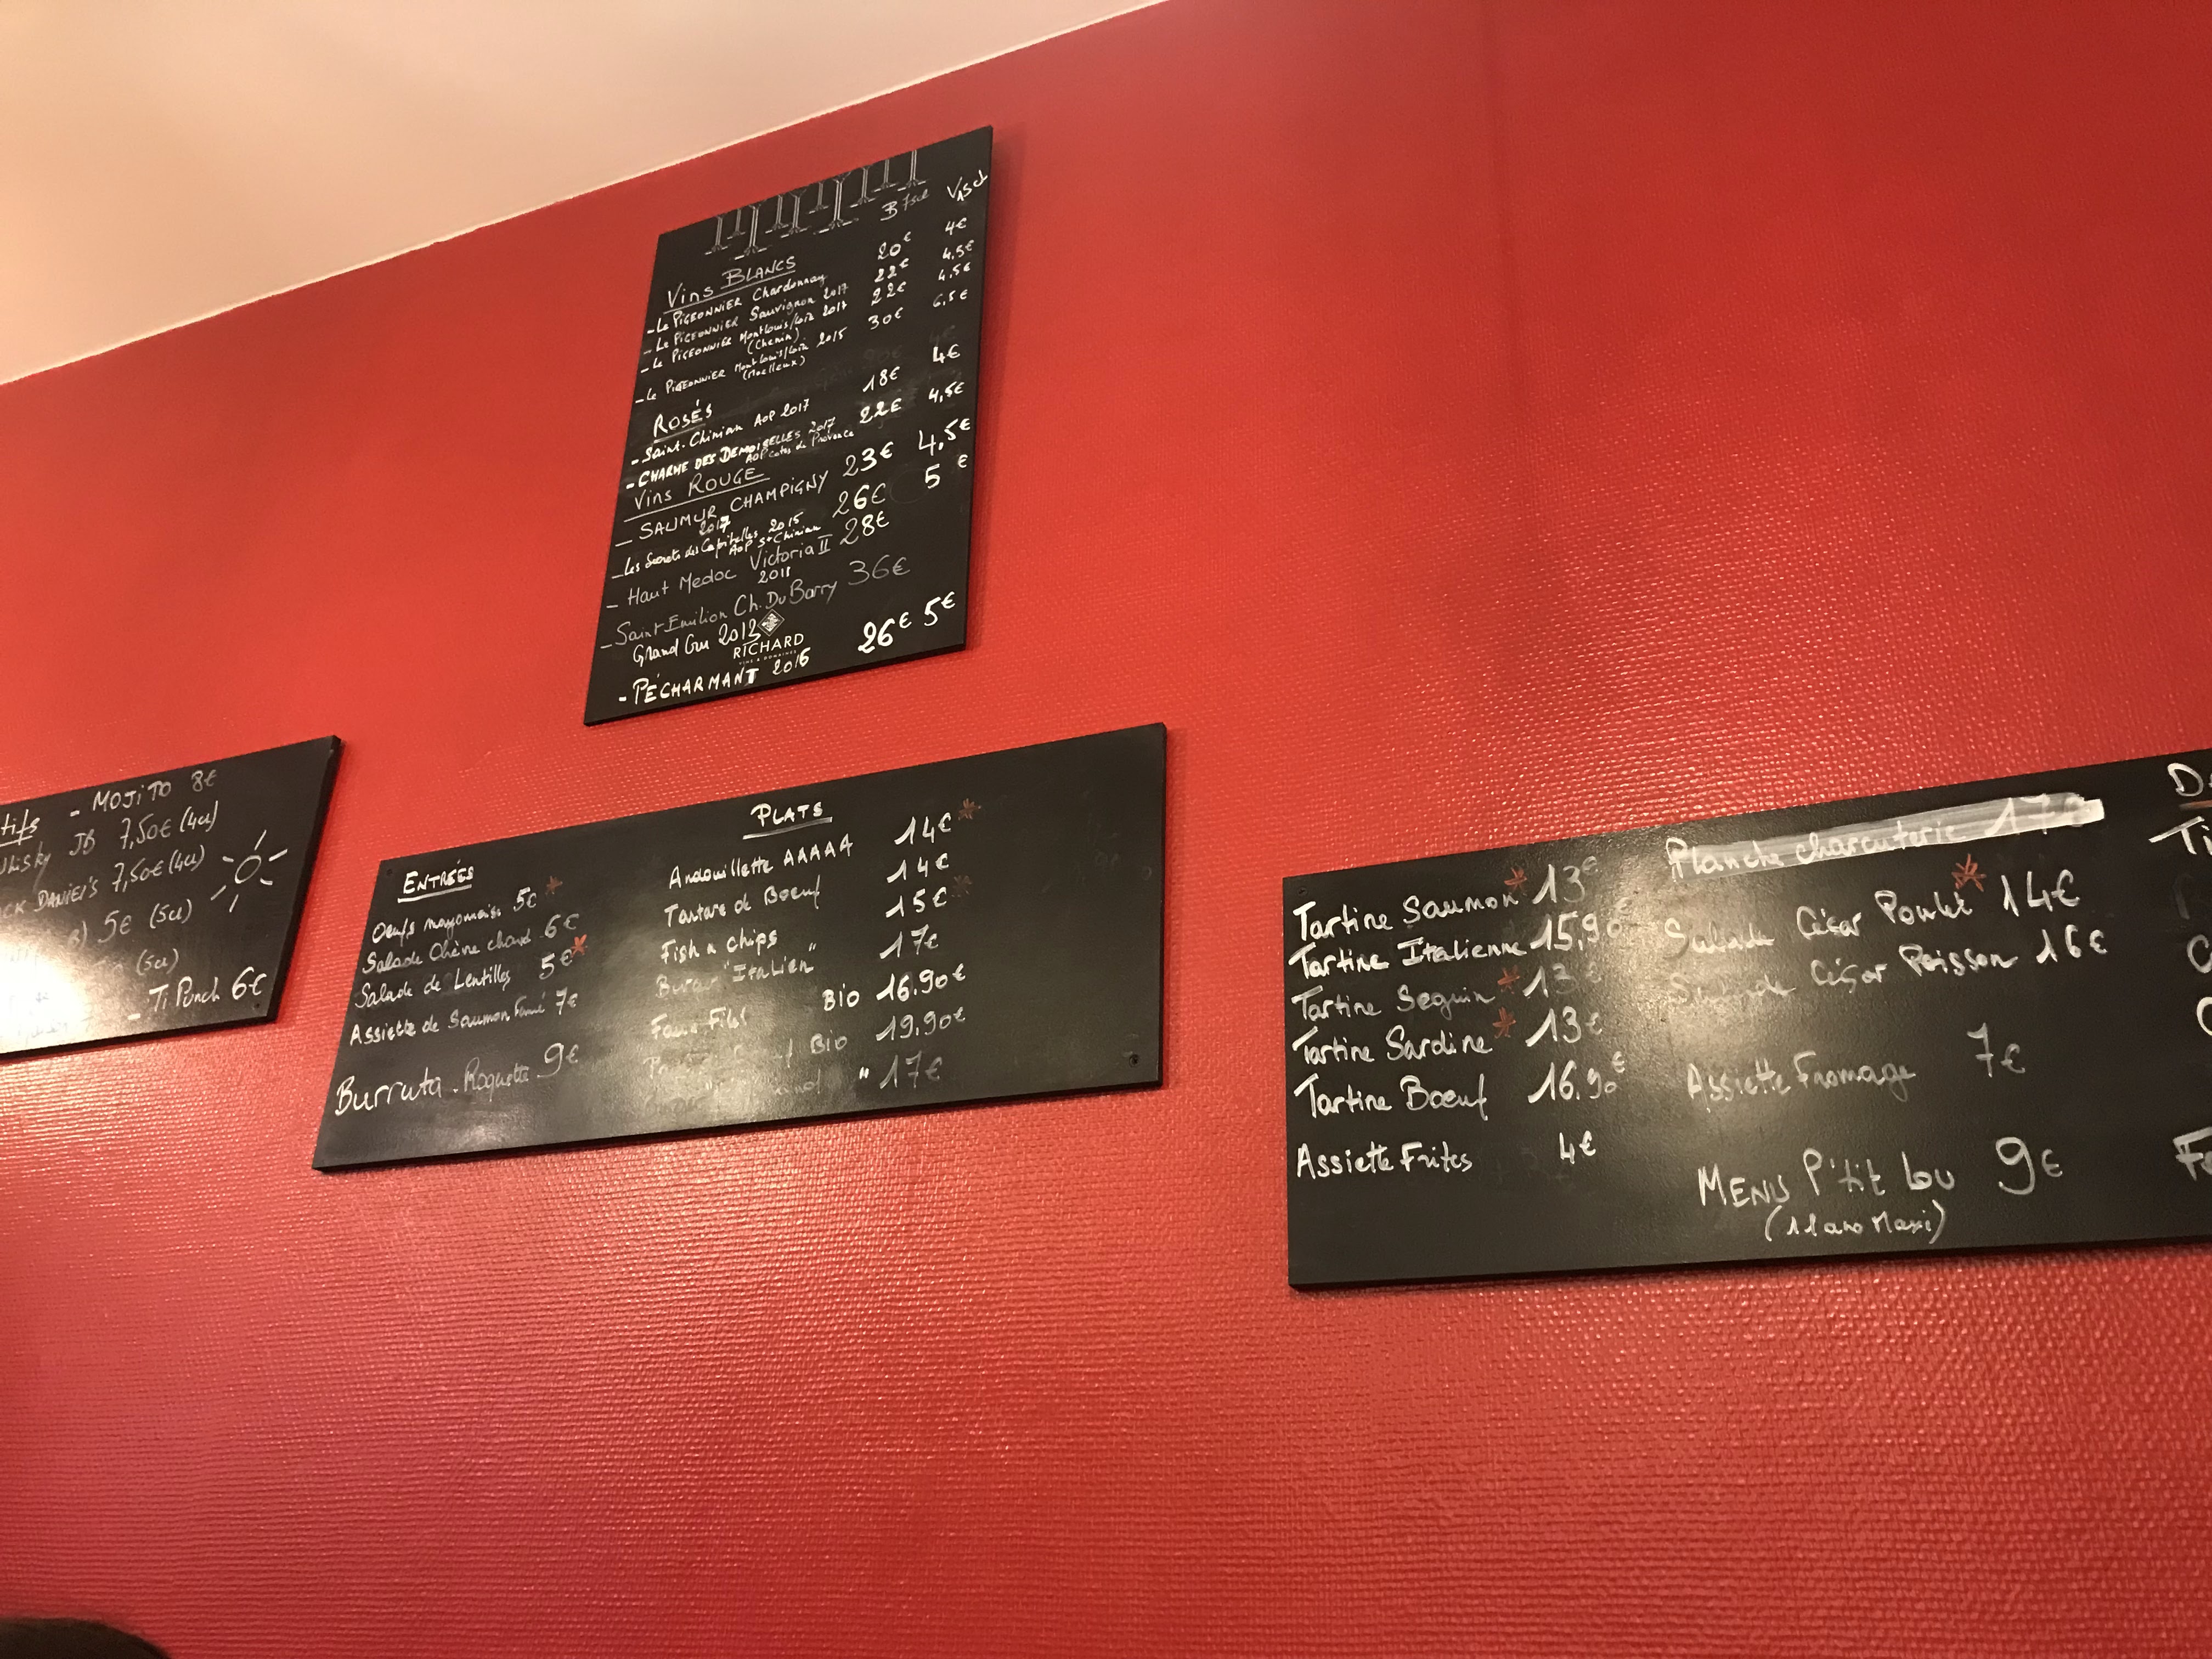 B 75cl V 15cl
Vins BLANCS
- Le PIGEONNIER Chardonnay 20€ 4€
- Le PIGEONNIER Sauvignon 2017 22€ 4,5€
- Le PIGEONNIER Montlouis/Loire 2017 22€ 4,5€
(Chenin)
- Le PIGEONNIER Montlouis/Loire 2015 30€ 6,5€
(Moelleux)
ROSÉS
- Saint-Chinian AOP 2017 18€ 4€
- CHARME DES DEMOISELLES 2017 22€ 4,5€
AOP cotes de Provence
Vins ROUGE
- SAUMUR CHAMPIGNY 23€ 4,5€
2017
- Les Secrets des Capitelles 2015 26€ 5€
AOP St Chinian
- Haut Medoc Victoria II 28€
2011
- Saint Emilion Ch. Du Barry 36€
Grand Cru 2012
RICHARD
- PÉCHARMANT 2016 26€ 5€
tifs - MOJITO 8€
Whisky JB 7,50€ (4cl)
CK DANIEL'S 7,50€ (4cl)
5€ (5cl)
(5cl)
- Ti Punch 6€
ENTRÉES
Oeufs mayonnaise 5€
Salade Chèvre chaud 6€
Salade de Lentilles 5€
Assiette de Saumon Fumé 7€
Burrata . Roquette 9€
PLATS
Andouillette AAAAA 14€
Tartare de Boeuf 14€
Fish n chips 15€
Burger "Italien" 17€
Faux Filet Bio 16.90€
Bio 19.90€
" 17€
Tartine Saumon 13€
Tartine Italienne 15,90€
Tartine Seguin 13€
Tartine Sardine 13€
Tartine Boeuf 16.90€
Assiette Frites 4€
Planche charcuterie 17€
Salade César Poulet 14€
Salade César Poisson 16€
Assiette Fromage 7€
MENU P'tit Lou 9€
(11 ans Maxi)